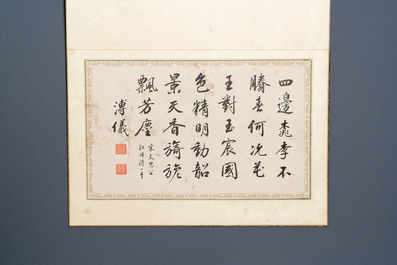 四邊桃李不
勝春何況花
王對玉宸國
色精明動韶
景天香旖旎
飄芳塵
宋文忠公
牡丹詩一
溥儀